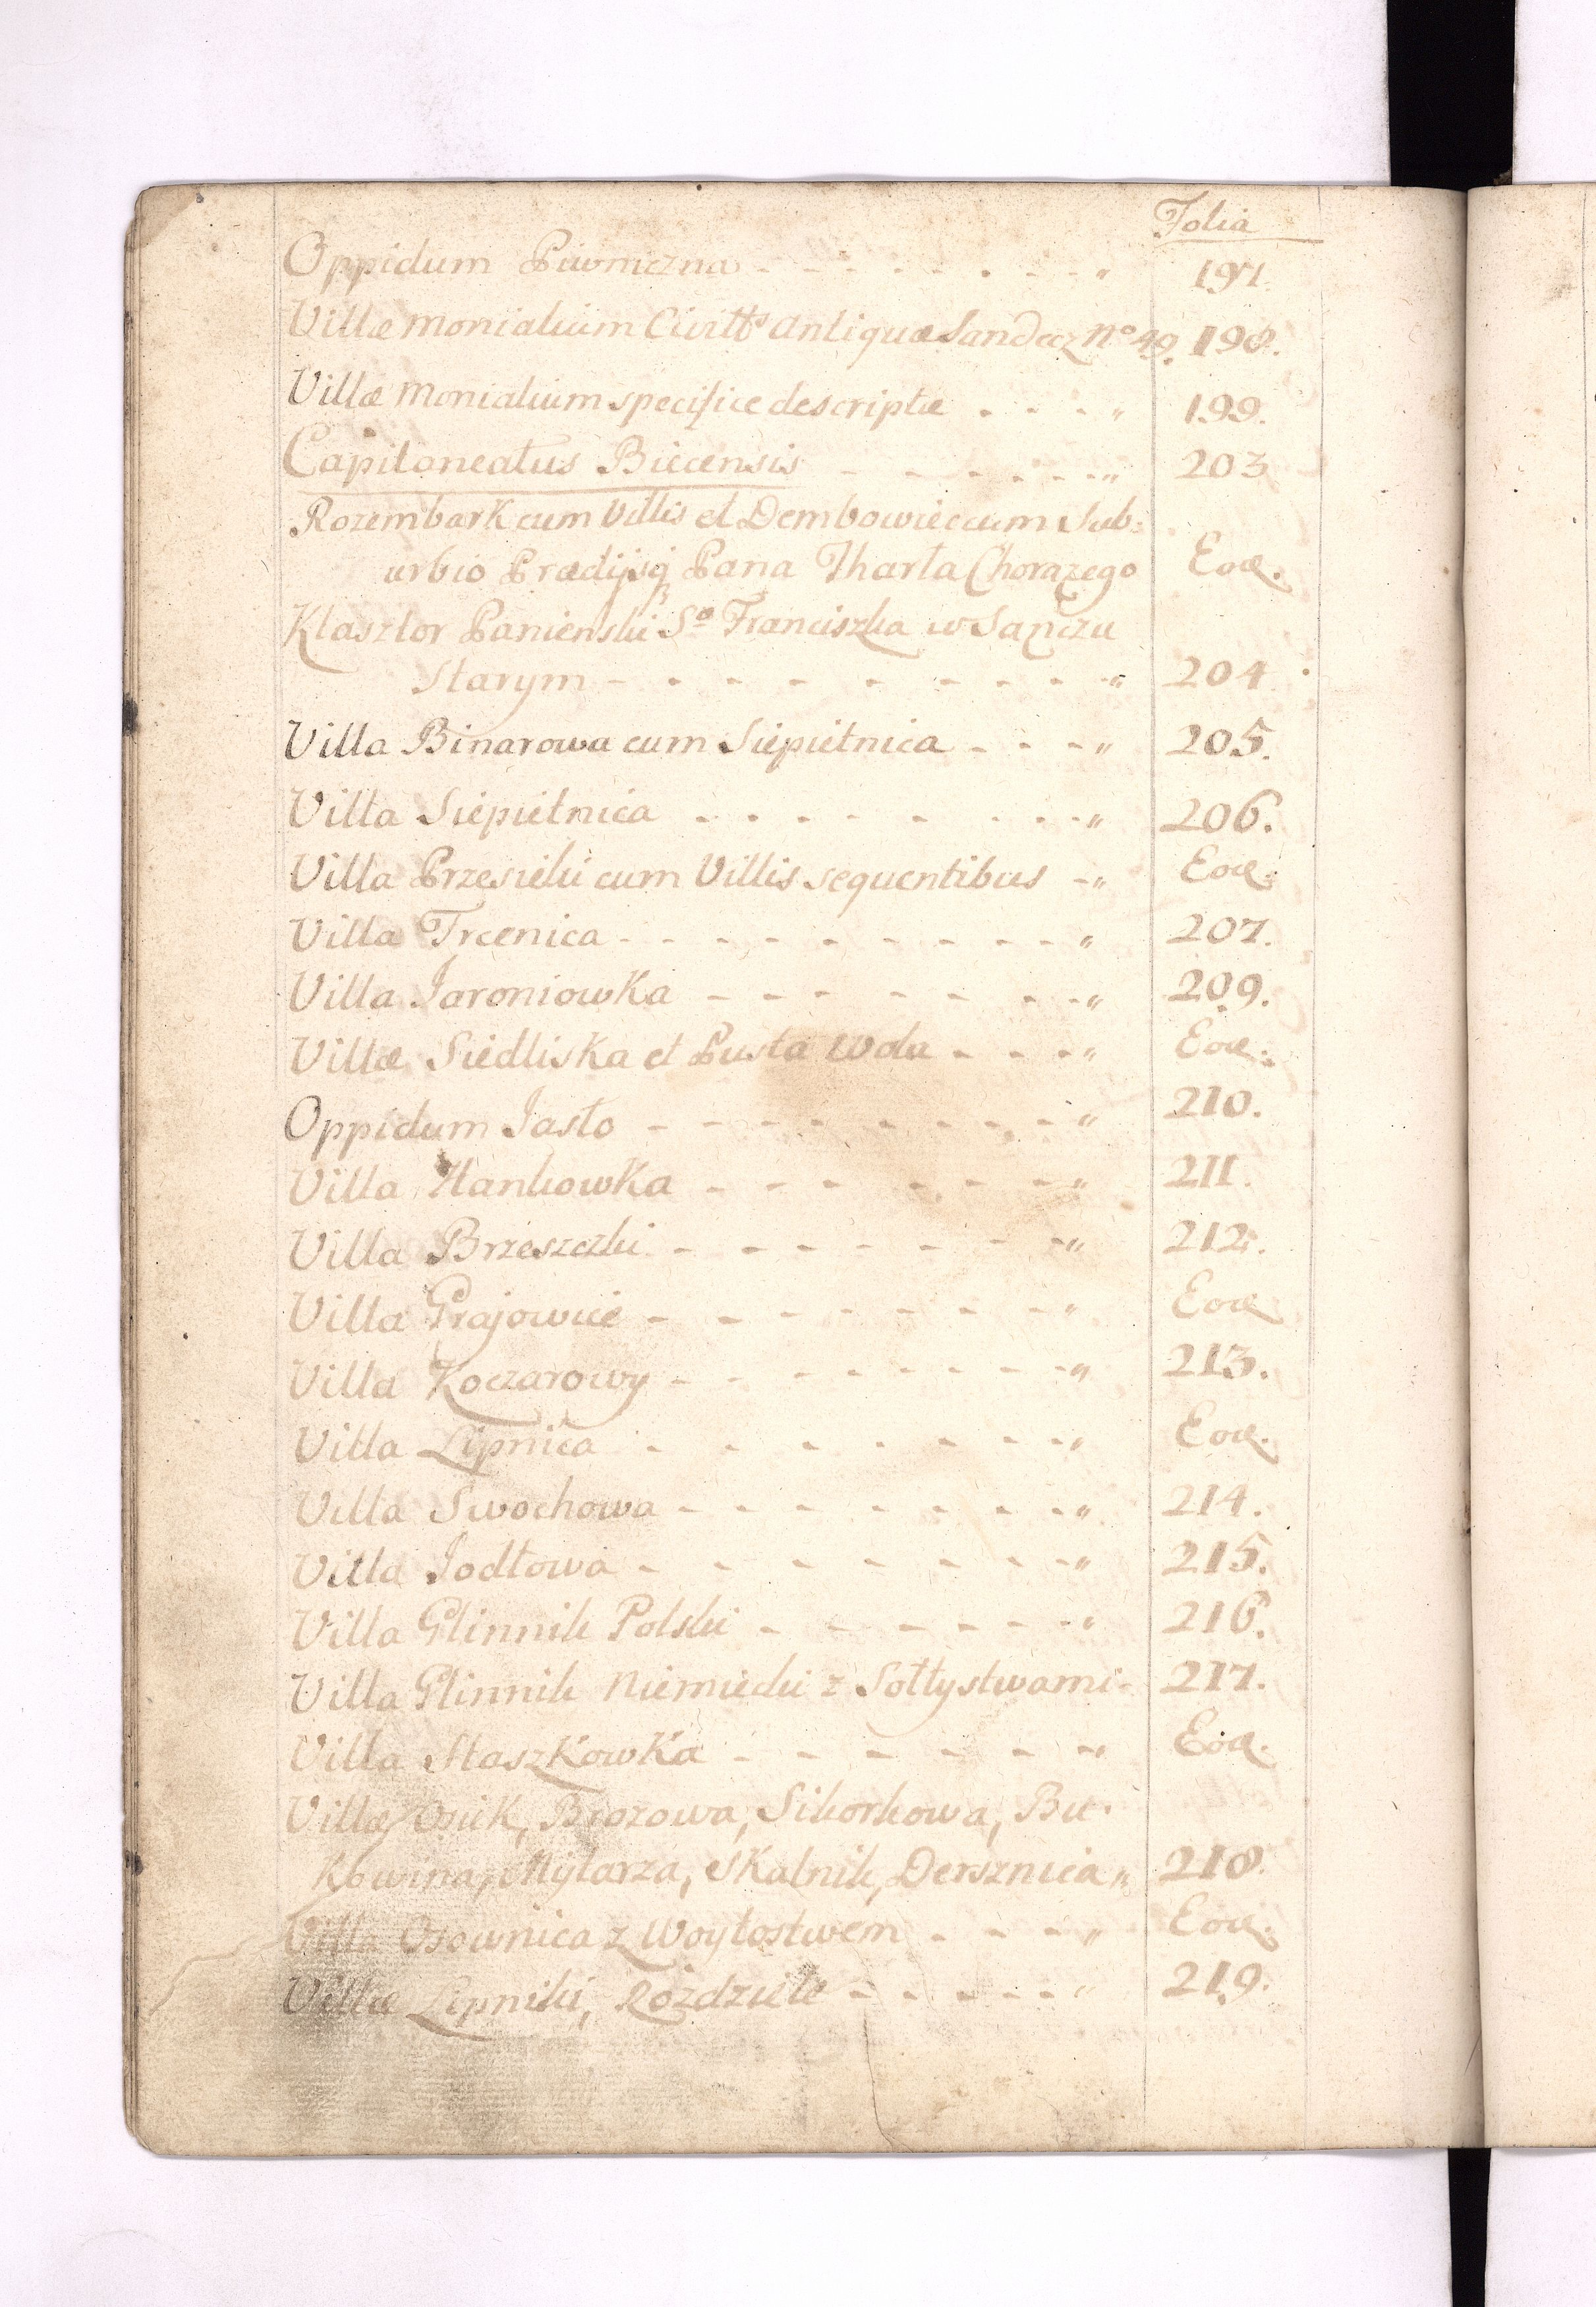 Folia
Oppidum Piwniczna - - - - - - - - „ 197.
Villæ monialium Civitts antiquæ Sandecz No 49. 198.
Villæ Monialium specifice descriptæ - - - „ 199.
Capitaneatus Biecensis - - - - - - „ 203
Rozembark cum Villis et Dembowiec cum Sub:
urbio Prædijsq Pana Tharła Chorązego Eod.
Klasztor Panienski So Franciszka w Sączu
Starym - - - - - - - - „ 204.
Villa Binarowa cum Siepietnica - - - „ 205.
Villa Siepietnica - - - - - - - „ 206.
Villa Przesieki cum Villis sequentibus - „ Eod.
Villa Trcenica - - - - - - - - - „ 207.
Villa Jaroniowka - - - - - - - „ 209.
Villæ Siedliska et Pusta Wola - - - „ Eod.
Oppidum Jasło - - - - - - - - „ 210.
Villa Hankowka - - - - - - - „ 211.
Villa Brzeszczki - - - - - - - „ 212.
Villa Grajowice - - - - - - - „ Eod.
Villa Koczarowy - - - - - - - „ 213.
Villa Lipnica - - - - - - - „ Eod.
Villa Swochowa - - - - - - - „ 214.
Villa Jodłowa - - - - - - - „ 215.
Villa Glinnik Polski - - - - - - „ 216.
Villa Glinnik Niemiecki z Sołtystwami - 217.
Villa Staszkowka - - - - - - „ Eod.
Villæ Osiek, Brozowa, Sikorkowa, Bu-
kowina, Mytarza, Skalnik, Dersznica „ 218.
Villa Osownica z Woytostwem - - - „ Eod.
Villæ Lipniki, Rozdziele - - - - - „ 219.